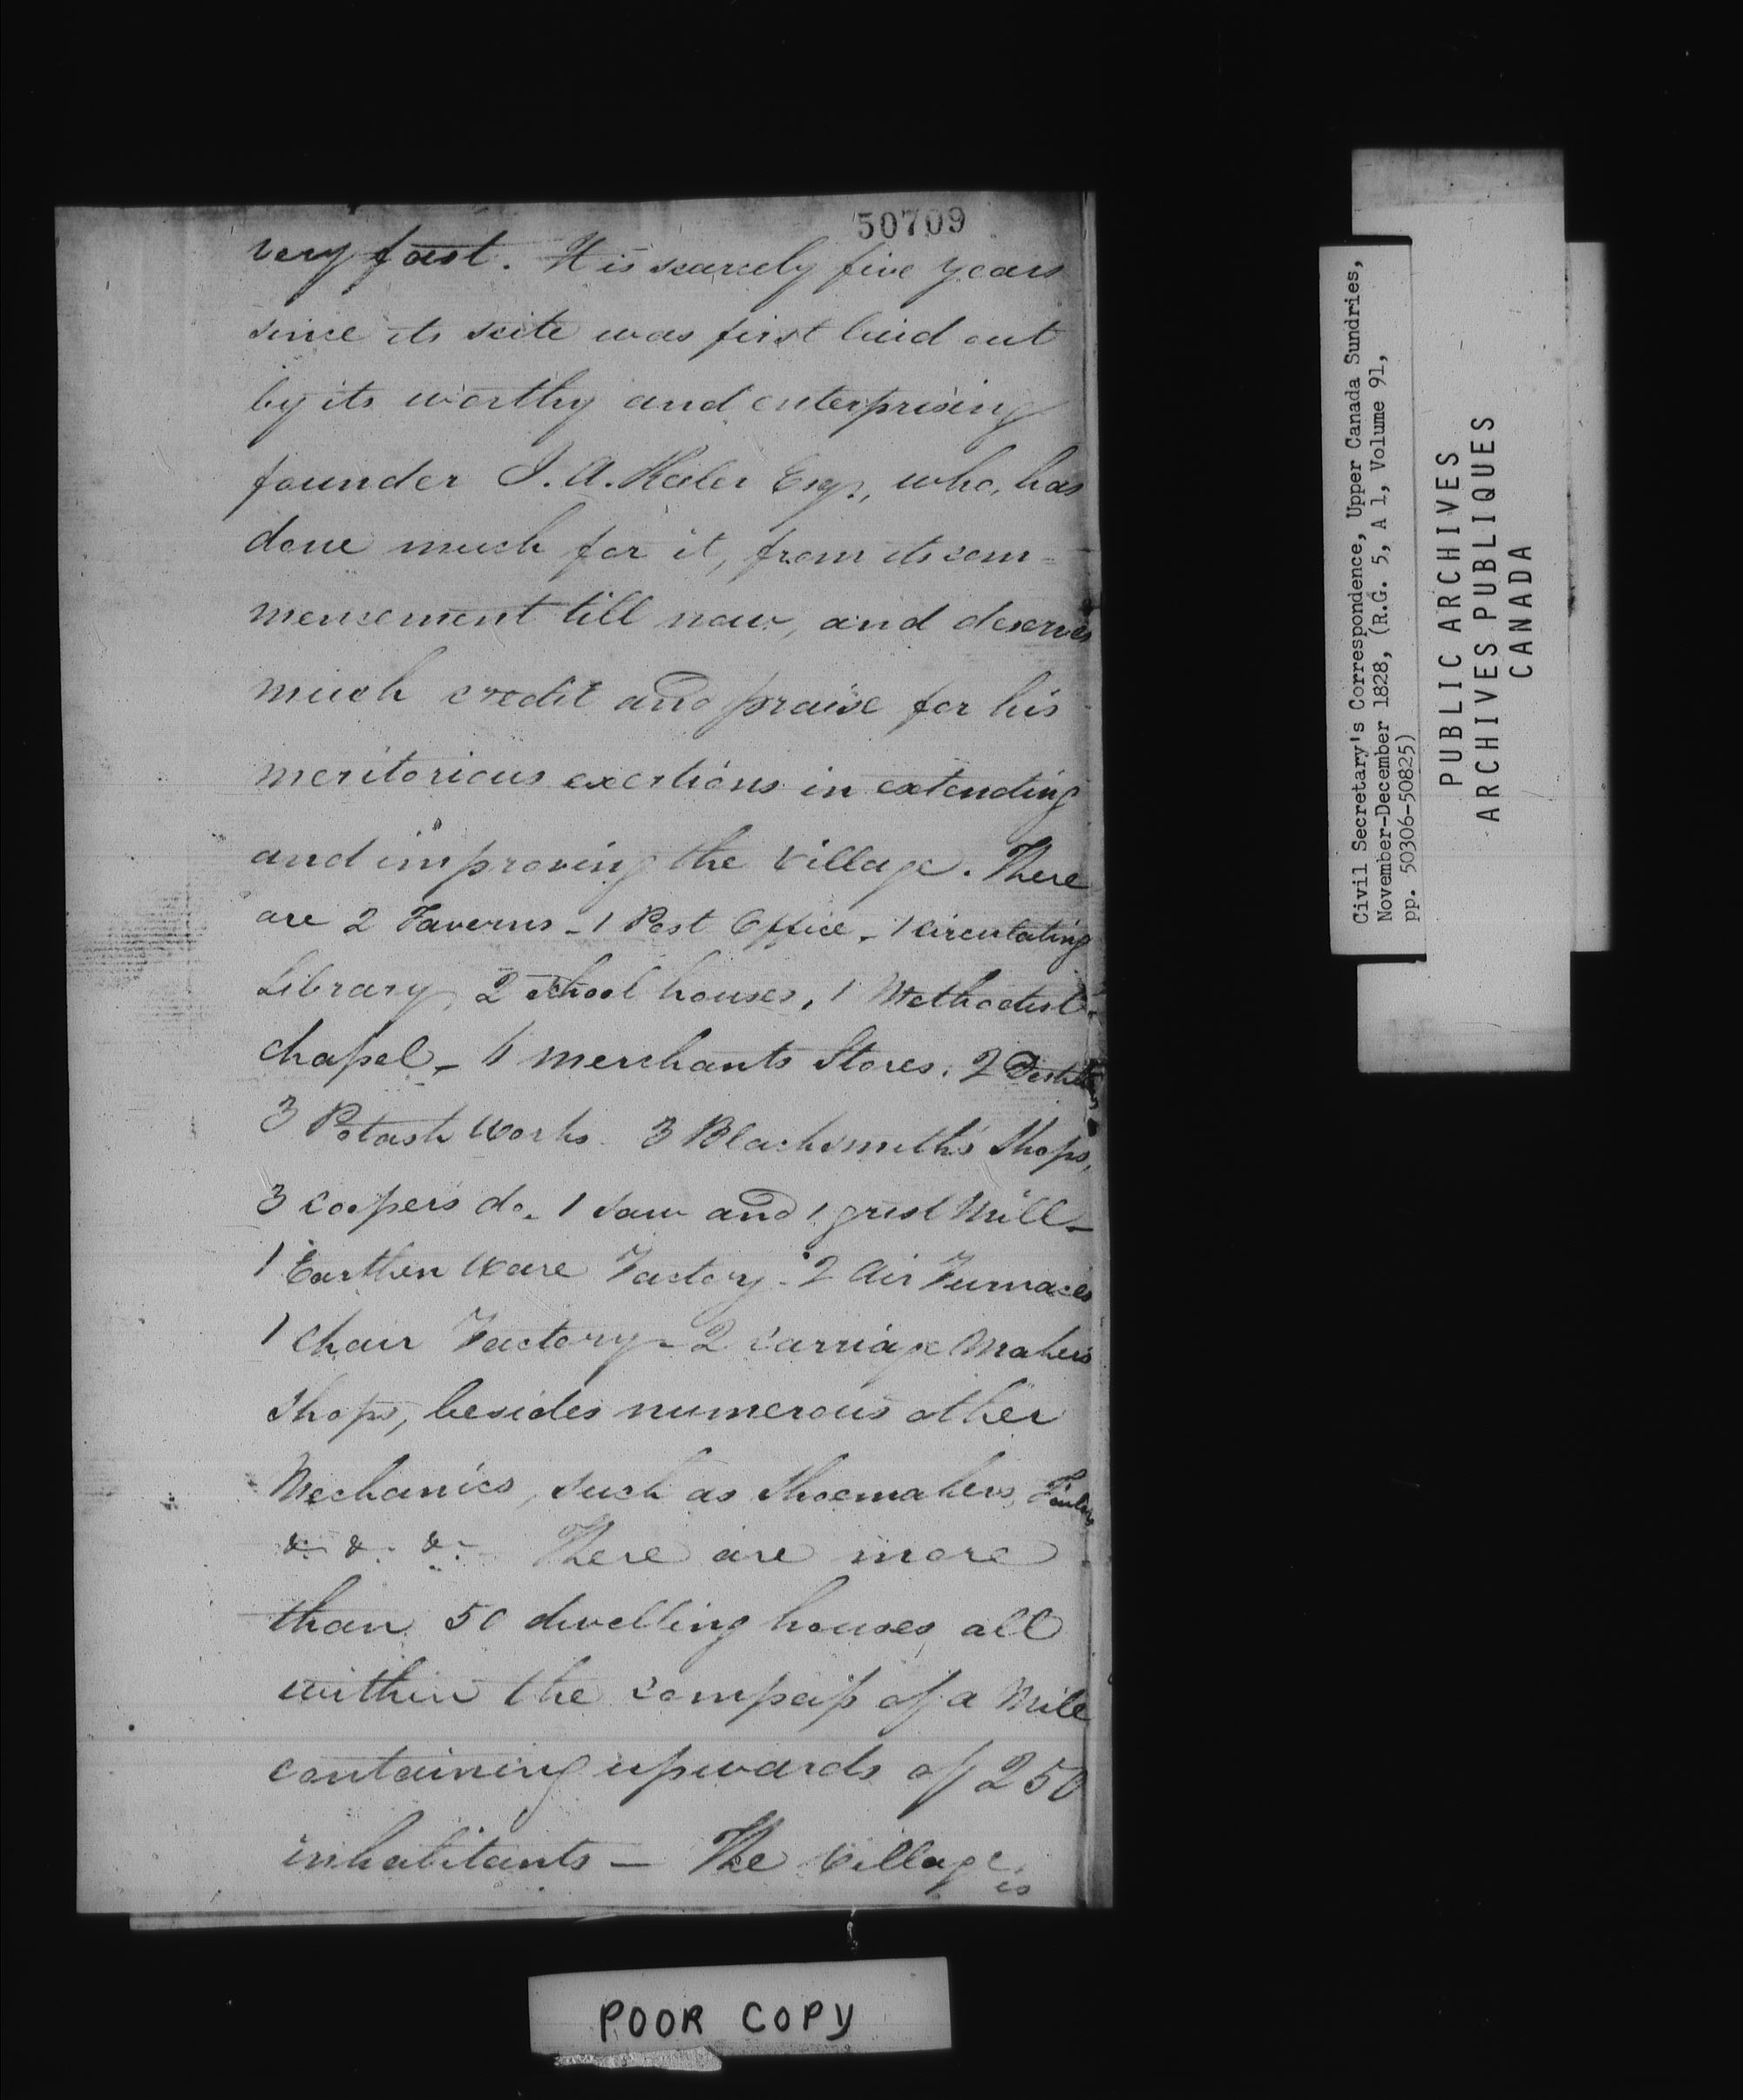 50709
very fast. It is scarcely five years
since its scite was first laid out
by its worthy and enterprising
founder J. A. Keeler Esqr., who, has
done much for it, from its com=
mencement till now, and deserves
much credit and praise for his
meritorious exertions in extending
and improving the village. There
are 2 Taverns - 1 Post Office - 1 circulating
Library, 2 School houses, 1 Methodist
chapel - 4 merchants Stores. 2
3 Potash works 3 Blacksmith's Shops,
3 coopers do. 1 saw and 1 grist Mill -
1 Earthen ware Factory - 2 Air Furnaces
1 chair Factory - 2 carriage Makers
Shops, besides numerous other
Mechanics, such as Shoemakers,
&c. &c. &c. There are more
than 50 dwelling houses all
within the compass of a Mile
containing upwards of 250
inhabitants — The village
is
POOR COPY
Civil Secretary's Correspondence, Upper Canada Sundries,
November-December 1828, (R.G. 5, A 1, Volume 91,
pp. 50306-50825)
PUBLIC ARCHIVES
ARCHIVES PUBLIQUES
CANADA